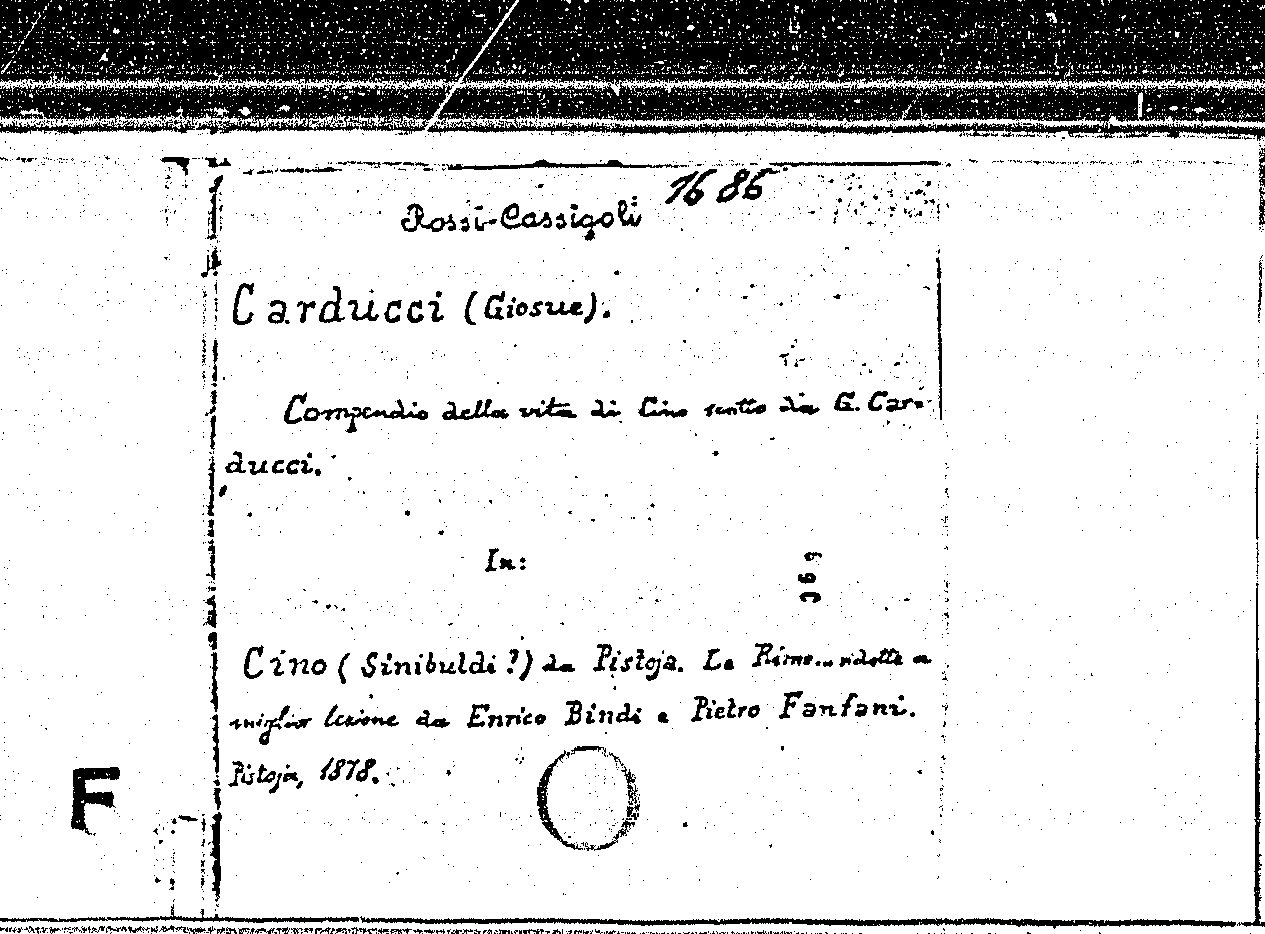 Rossi-Cassigoli 1686
Carducci (Giosue).
Compendio della vita di Cino scritto da G. Car-
ducci.
In:
369
Cino (Sinibuldi?) da Pistoja. Le Rime... ridotte a
miglior lezione da Enrico Bindi e Pietro Fanfani.
Pistoja, 1878.
F